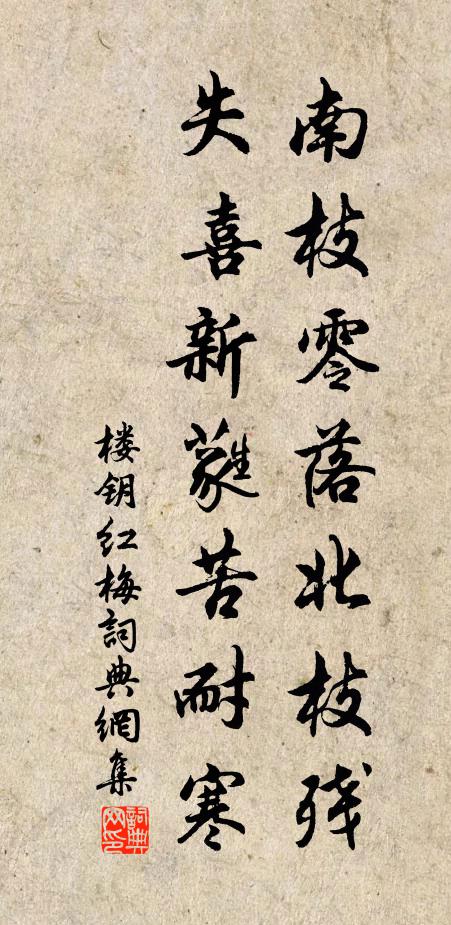 南枝零落北枝残
失喜新蕤苦耐寒
楼钥红梅詞典網集
詞典网印